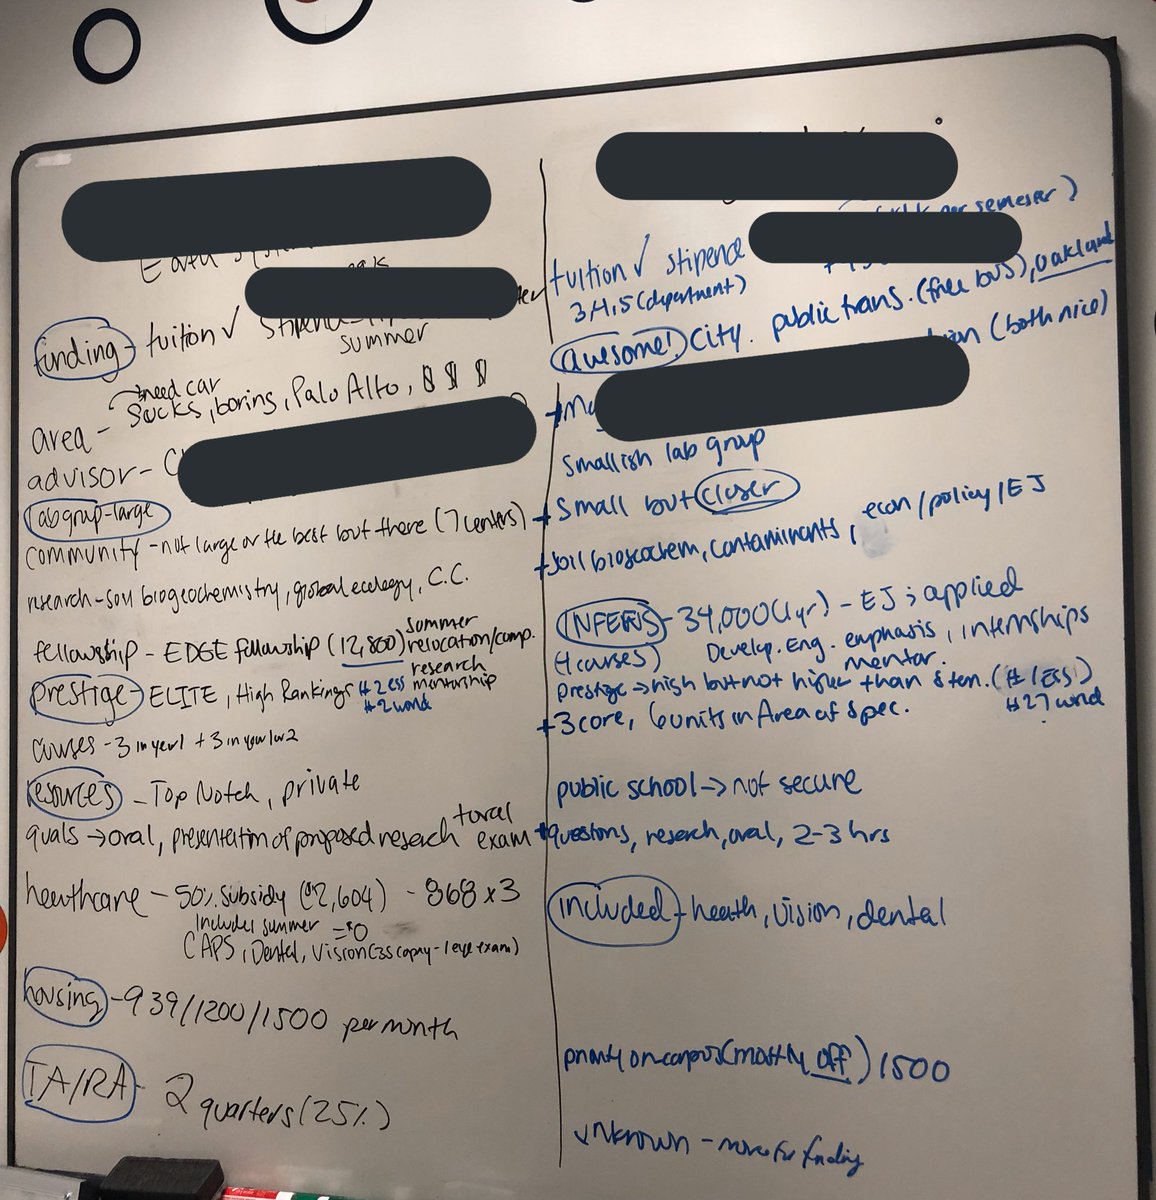 Earth
funding - tuition ✓ stipend
summer
→need car
area - sucks, boring, Palo Alto, $ $ $
advisor - C
lab group-large
community - not large or the best but there (7 centers)
research - soil biogeochemistry, global ecology, C.C.
fellowship - EDGE fellowship (12,800) summer relocation/comp.
research mentorship
prestige - ELITE, High Rankings #2 ESS
#2 world
courses - 3 in year 1 + 3 in year 2
resources - Top Notch, private
quals → oral, presentation of proposed research + oral exam
healthcare - 50% subsidy ($2,604) - 868 x 3
includes summer = $0
CAPS, Dental, Vision ($35 copay - 1 eye exam)
housing - 939/1200/1500 per month
TA/RA - 2 quarters (25%)
per semester)
tuition ✓ stipend
3 H.S (department)
awesome! City. public trans. (free bus), Oakland
(both nice)
smallish lab group
+ small but closer
+ soil biogeochem, contaminants, econ/policy/EJ
INFEWS - 34,000 (1 yr) - EJ; applied
(4 courses) Develop. Eng. emphasis, internships
mentor.
prestige → high but not higher than Sten. (#1 ESS)
#27 world
+ 3 core, 6 units in Area of Spec.
public school → not secure
+ questions, research, oral, 2-3 hrs
included - health, vision, dental
priority on-campus (mostly off) 1500
unknown - more for funding